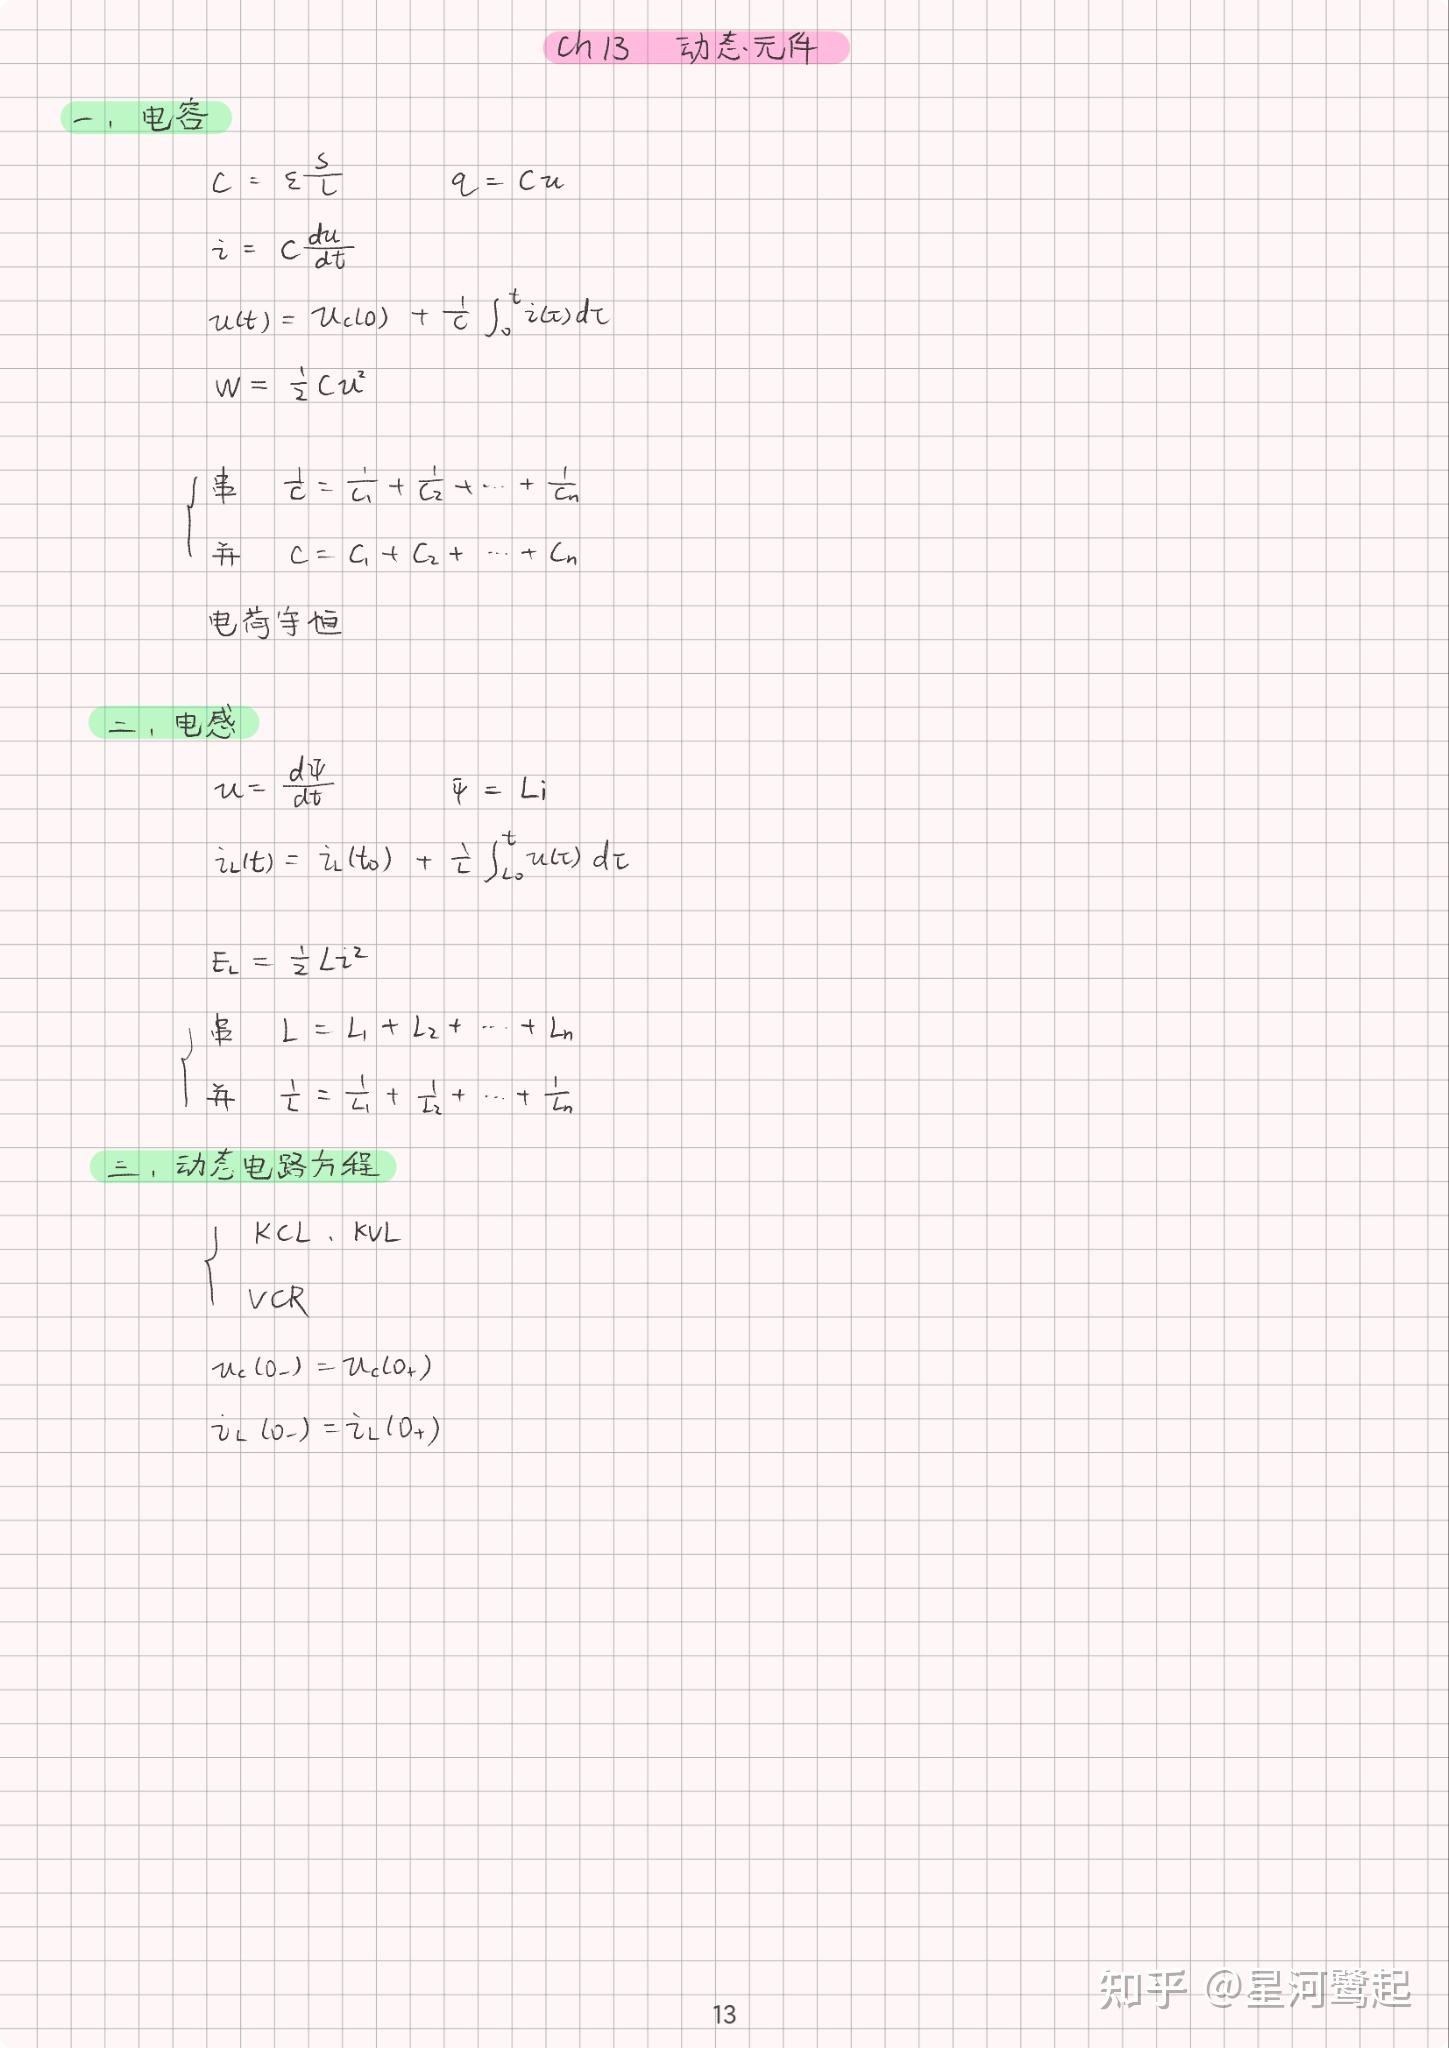 Ch 13 动态元件
一、电容
C = ε S/L    q = Cu
i = C du/dt
u(t) = uc(0) + 1/C ∫₀ᵗ i(τ)dτ
W = 1/2 Cu²
串 1/C = 1/C₁ + 1/C₂ + ··· + 1/Cn
并 C = C₁ + C₂ + ··· + Cn
电荷守恒
二、电感
u = dΨ/dt    Ψ = Li
iL(t) = iL(t₀) + 1/L ∫ₜ₀ᵗ u(τ) dτ
EL = 1/2 Li²
串 L = L₁ + L₂ + ··· + Ln
并 1/L = 1/L₁ + 1/L₂ + ··· + 1/Ln
三、动态电路方程
KCL、KVL
VCR
uc(0₋) = uc(0₊)
iL(0₋) = iL(0₊)
知乎 @星河鹭起
13